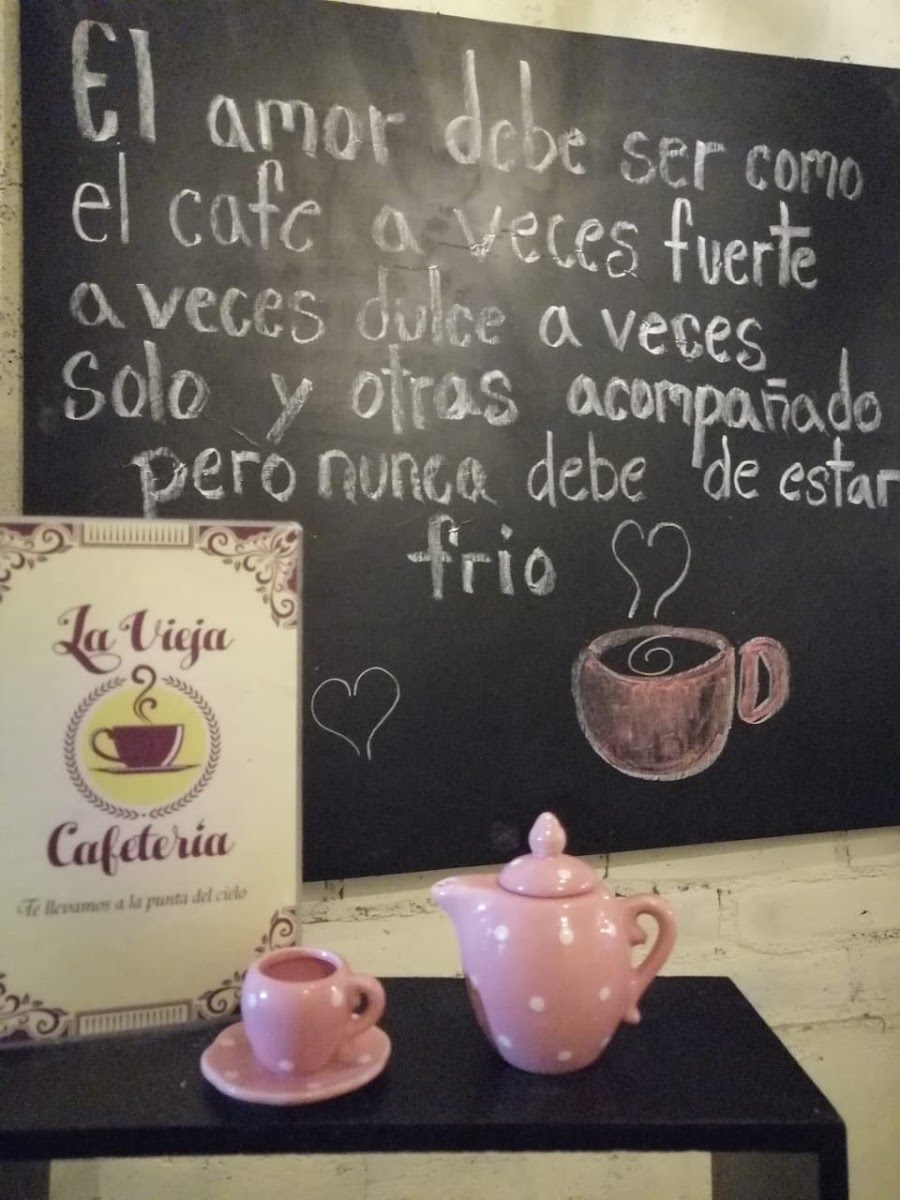 El amor debe ser como
el cafe a veces fuerte
a veces dulce a veces
Solo y otras acompañado
pero nunca debe de estar
frio
La Vieja
Cafetería
Te llevamos a la punta del cielo